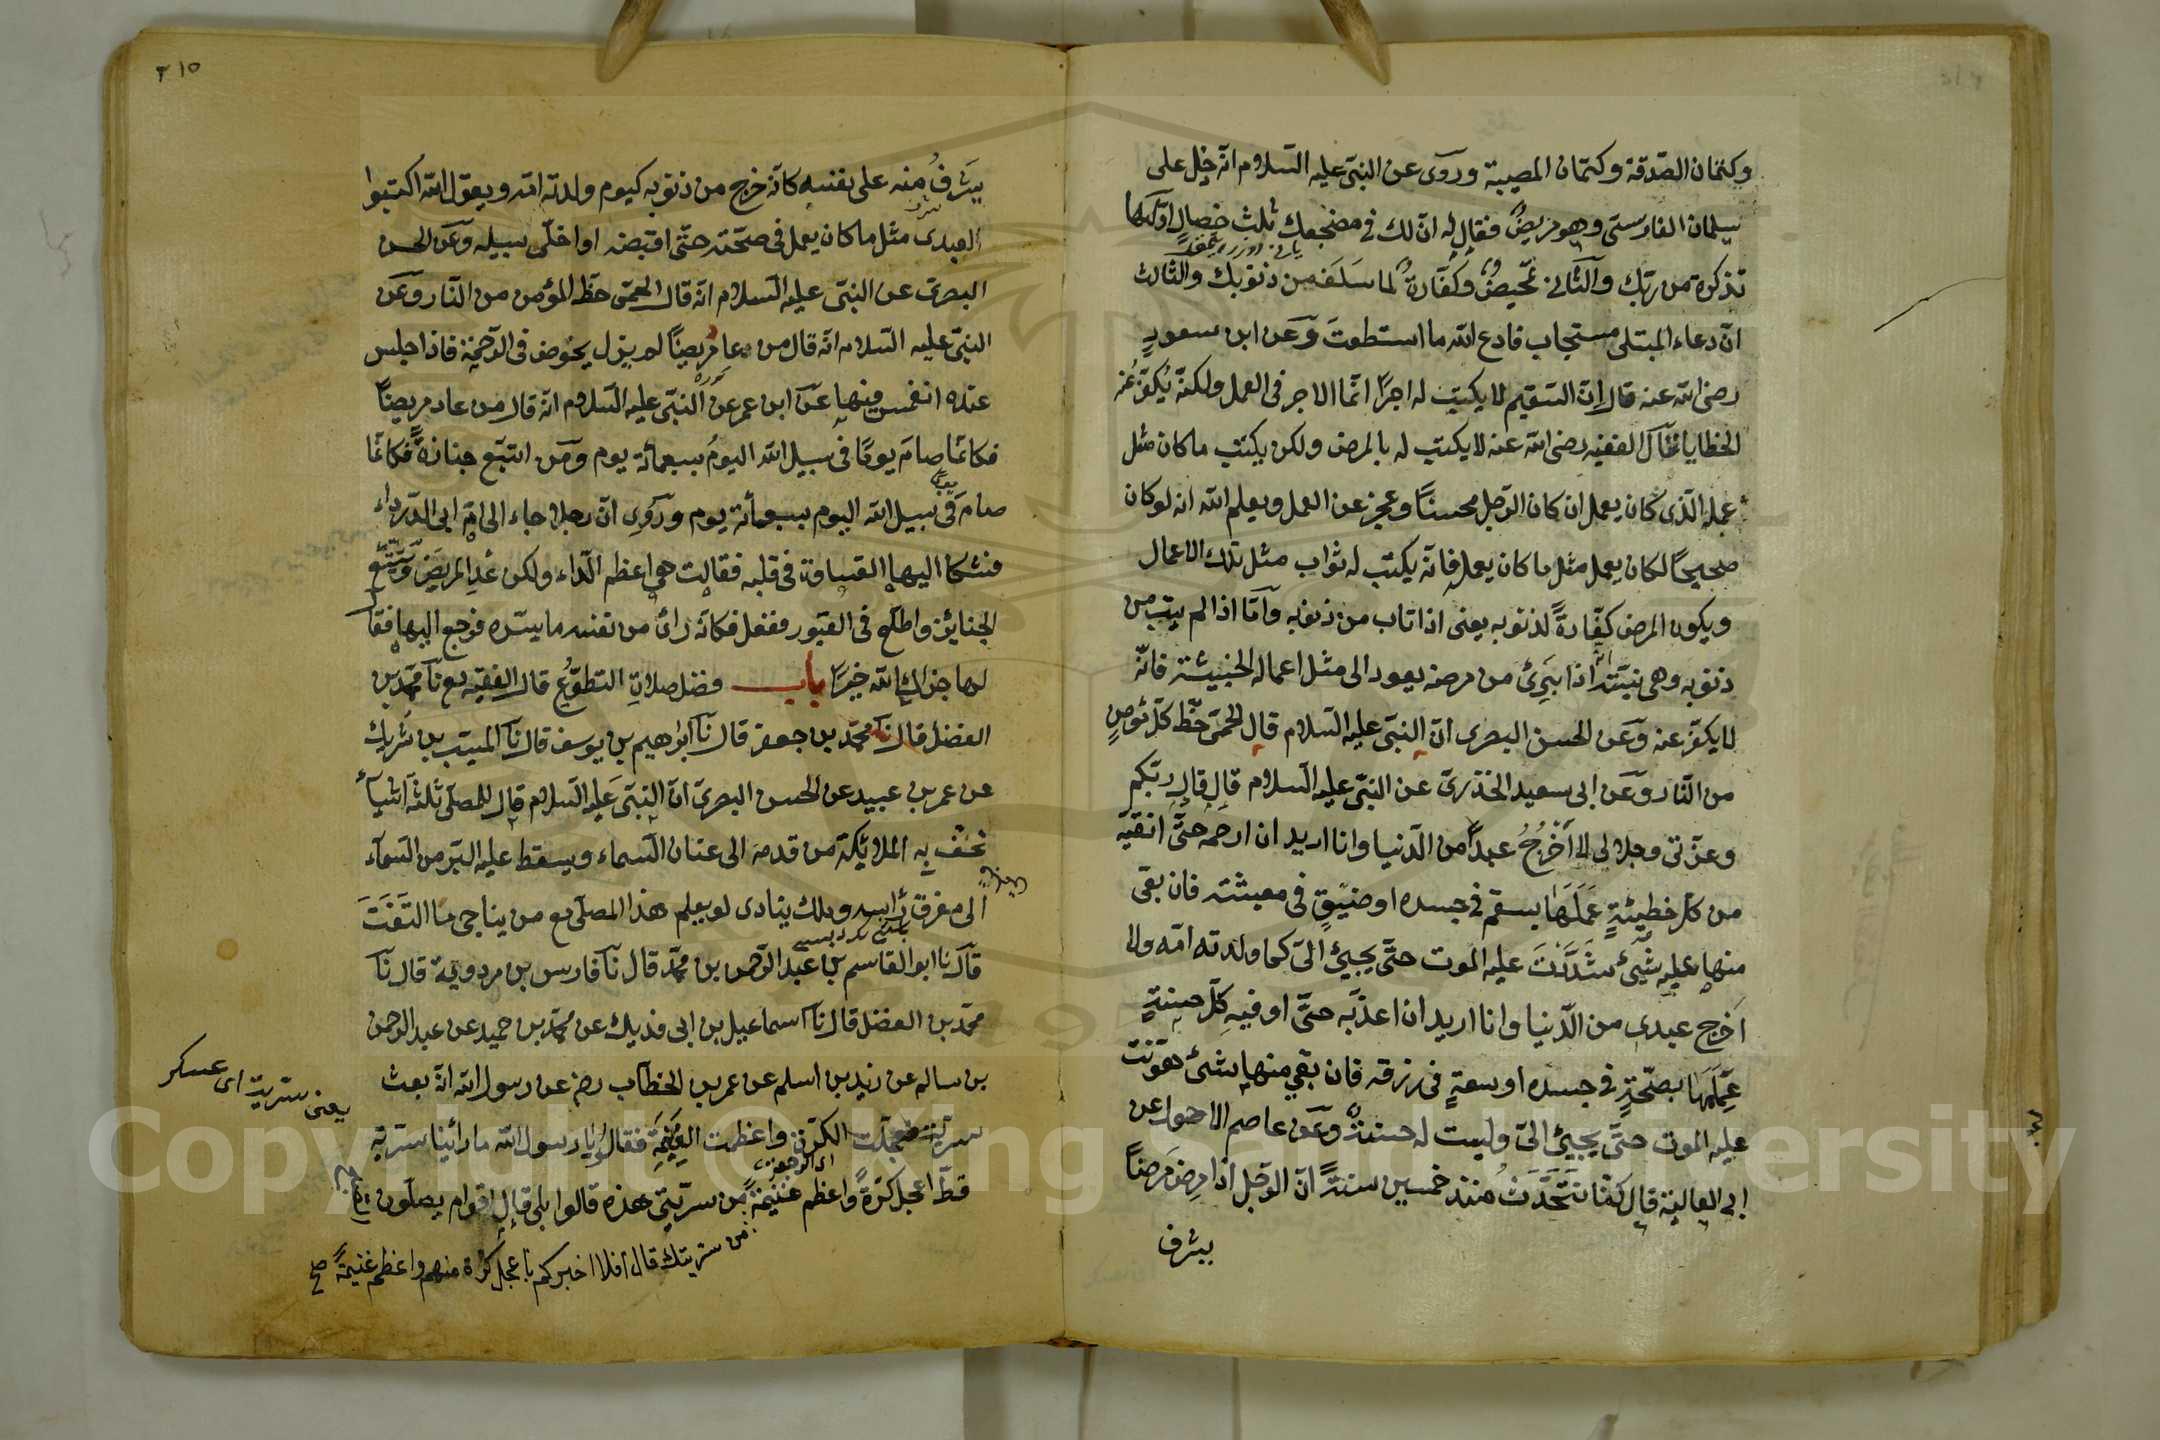 وكتمان الصّدقة وكتمان المصيبة وروى عن النبيّ عليه السّلام انّه دخل على
سلمان الفارسىّ وهو مريضٌ فقال له انّ لك فى مضجعك ثلث خصالٍ اوّلها
تذكرة من ربّك والثّانى تمحيصٌ وكفّارةٌ لما سَلَفَ من ذنوبك والثّالث
انّ دعاء المبتلى مستجاب فادع اللّه ما استطعتَ وعن ابن مسعودٍ
رضى اللّه عنه قال انّ السّقيم لا يكتب له اجرًا انّما الاجر فى العمل ولكنّه يُكفّر عنه
الخطايا قال الفقيه رضى اللّه عنه لا يكتب له بالمرض ولكن يكتب ما كان مثل
عمله الّذى كان يعمل ان كان الرّجل محسنًا وعجز عن العمل ويعلم اللّه انه لو كان
صحيحًا لكان يعمل مثل ما كان يعمل فانّه يكتب له ثواب مثل تلك الاعمال
ويكون المرض كفّارةً لذنوبه يعنى اذا تاب من ذنوبه وامّا اذا لم يتب من
ذنوبه وهى نيّته انّه اذا بَرِئ من مرضه يعود الى مثل اعماله الخبيثة فانّه
لا يكفّر عنه وعن الحسن البصرى انّ النبيّ عليه السّلام قال الحمّى حظّ كلّ مؤمنٍ
من النّار وعن ابى سعيد الخدرىّ عن النبيّ عليه السّلام قال قال ربّكم
وعزّتى وجلالى لا اُخْرِجُ عبدًا من الدّنيا وانا اريد ان ارحمه حتّى انقّيه
من كلّ خطيئةٍ عَمِلَهَا بسقم فى جسده او ضيقٍ فى معيشته فان بقى
منها عليه شيئٌ شَدَدْتُ عليه الموت حتّى يجيئ الىّ كما ولدته امّه ولا
اَخرج عبدى من الدّنيا وانا اريد ان اعذّبه حتّى اوفيه كلّ حسنةٍ
عَمِلَهَا بصحّةٍ فى جسده او سعةٍ فى رزقه فان بقى منها شئ هوّنت
عليه الموت حتّى يجيئ الىّ وليست له حسنةٌ وعن عاصم الاحول عن
ابى العالية قال كنّا نتَحَدَّثُ منذ خمسين سنةً انّ الرّجل اذا مرِض مَرضاً
يشرف
٢١٥
يَشرَفُ منه على نفسه كانّه خرج من ذنوبه كيوم ولدته امّه ويقول اللّه اكتبوا
لعبدى مثل ما كان يعمل فى صحّته حتّى اقبضه او اخلّى سبيله وعن الحسن
البصرىّ عن النبىّ عليه السّلام انّه قال الحمّى حظّ المؤمن من النّار وعن
النبىّ عليه السّلام انّه قال من عاد مريضًا لم يزل يخوض فى الرّحمة فاذا جلس
عنده انغمس فيها عن ابن عمر عن النبّى عليه السّلام انّه قال من عاد مريضًا
فكانمّا صامَ يومًا فى سبيل اللّه اليومُ بسبعمائة يوم ومَن اتبّع جنازةً فكانمّا
صامَ يومًا فى سبيل اللّه اليوم بسبعمائة يوم ورُوِى انّ رجلا جاء الى امّ ابى الدّرداء
فشكا اليها القساوة فى قلبه فقالت هى اعظم الدّاء ولكن عُدِ المريضَ وشيّع
الجنايز واطّلع فى القبور ففعل فكانّه رائ من نفسه ما يسّره فرجع اليها فقال
لها جزاكِ اللّه خيرًا باب فضل صلاة التطوّع قال الفقيه رح نا محمّد بن
الفضل قال نا محمّد بن جعفر قال نا ابراهيم بن يوسف قال نا المسيّب بن شريك
عن عمر بن عبيد عن الحسن البصرىّ انّ النبىّ عليه السّلام قال للمصلّى ثلثة اشياءٍ
تحُفّ بِه الملايكة من قدمه الى عنان السّماء ويسقط عليه البرّ من السّماء
الى مفرق رأسه وملك ينادى لو يعلم هذا المصلّى مع من يناجى ما التَفَتَ
قال نا ابو القاسم بن عبد الرّحمن بن محمّد قال نا فارس بن مردوية قال نا
محمّد بن الفضل قال نا اسماعيل بن ابى فديك عن محمّد بن حميد عن عبد الرحمن
بن سالم عن زيد بن اسلم عن عمر بن الخطّاب رضى عن رسول اللّه انّه بعث
سريّة فعجلت الكرّة واعظمت الغنيمَة فقالوا يا رسول اللّه ما رأينا سريّة
قطّ اعجل كرّةً واعظم غنيمةً من سريّتى هذه قالوا بلى قال اقوام يصلّون
من سريتك قال افلا اخبركم باعجل كرّة منهم واعظم غنيمةً صح
يعنى سريت اى عسكر
Copyright © King Saud University